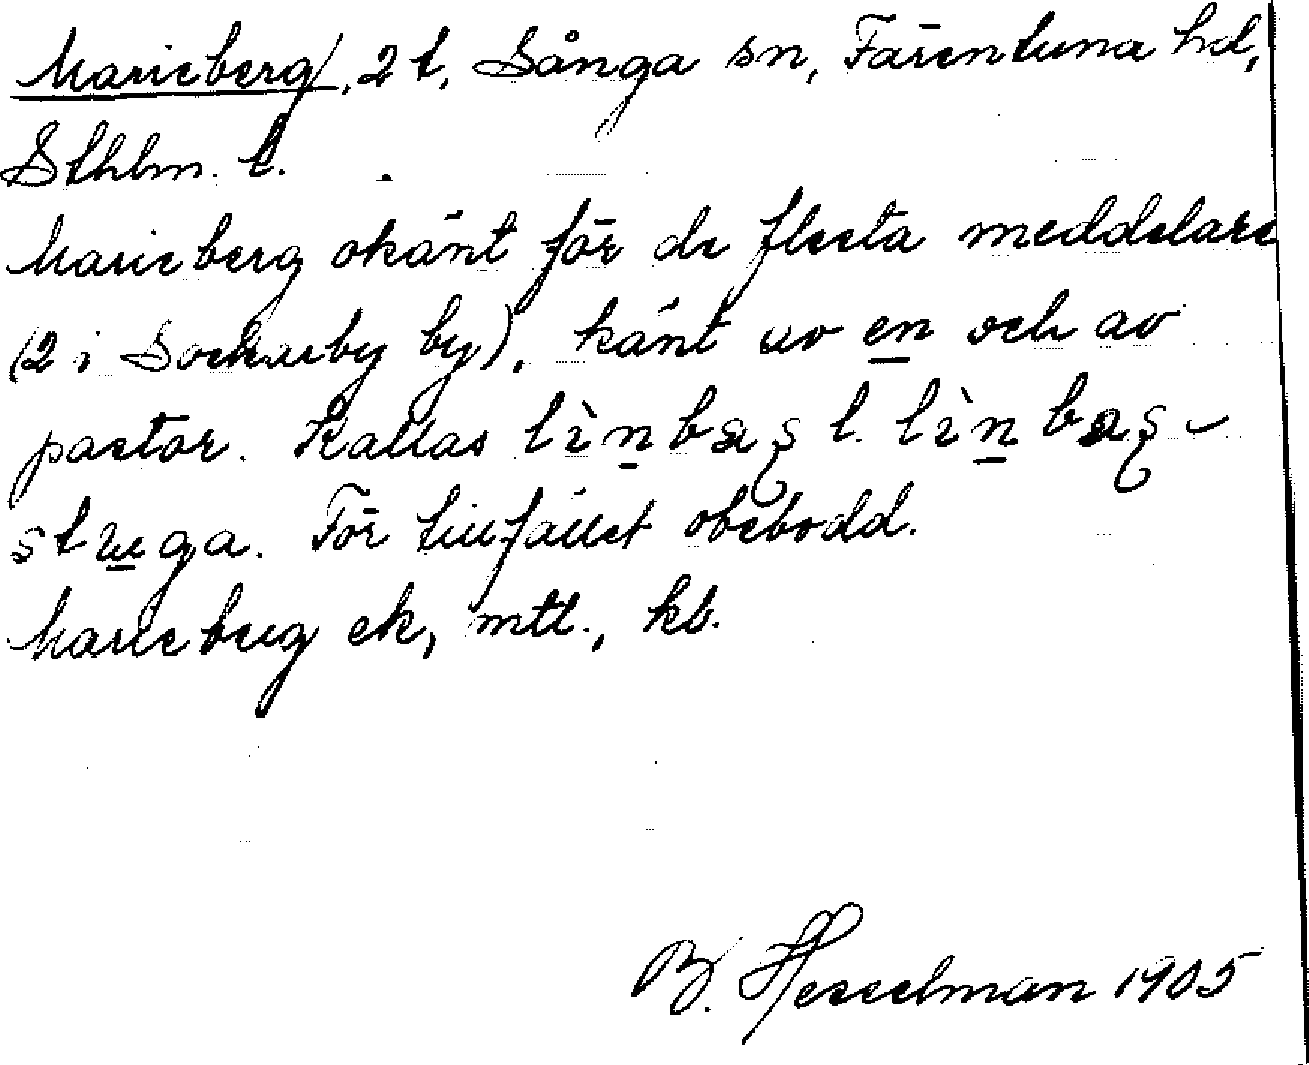 Marieberg, 2 t, Sånga sn, Färentuna hd,
Sthlm. l.
Marieberg okänt för de flesta meddelare
(2 i Sockarby by), känt av en och av
pastor. Kallas l. 
stuga. För tillfället obebodd.
Marieberg ek, mtl., kb.
B. Hesselman 1905